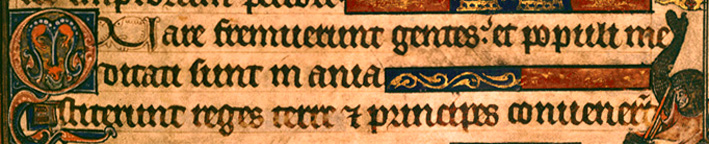 QUare fremuerunt gentes: et populi me
ditati sunt in ania
Astiterunt reges terre ⁊ principes conuener̄t